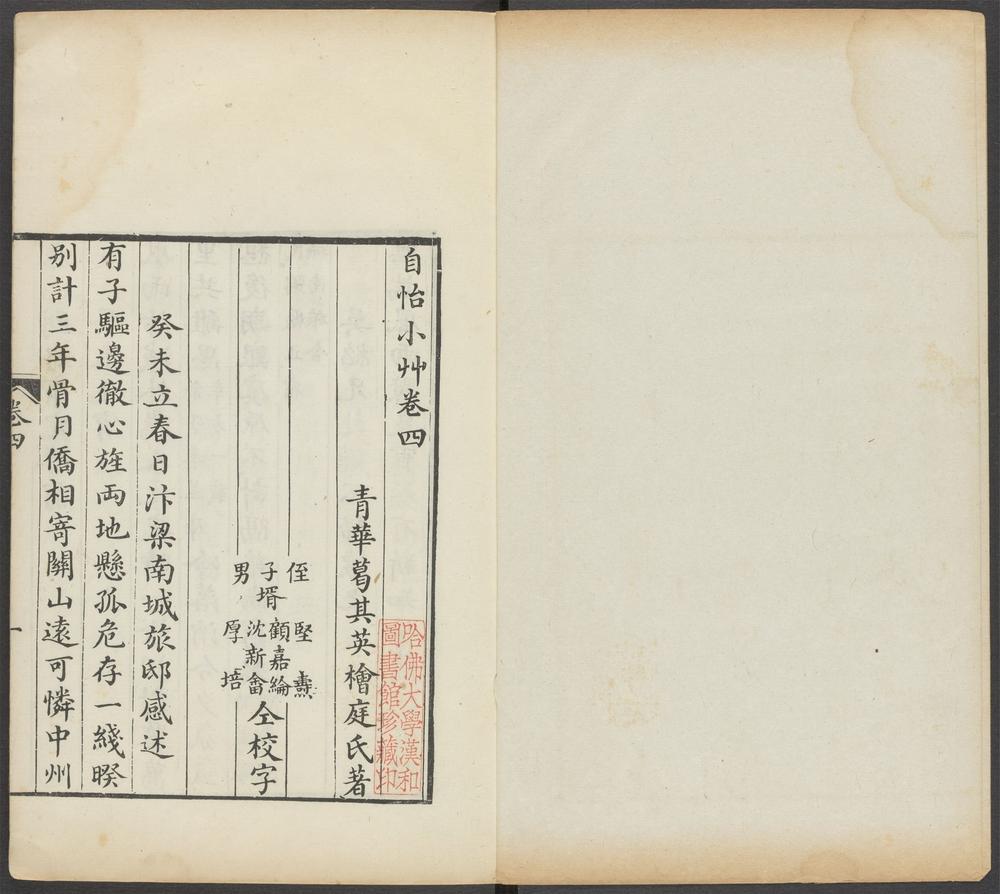 自怡小艸卷四
青華葛其英檜庭氏著
侄 堅 燾
子壻 顧嘉綸 沈新畬 仝校字
男 厚 培
癸未立春日汴梁南城旅邸感述
有子驅邊徹心旌两地懸孤危存一綫睽
別計三年骨月僑相寄關山遠可憐中州
卷四
一
哈佛大學漢和
圖書館珍藏印